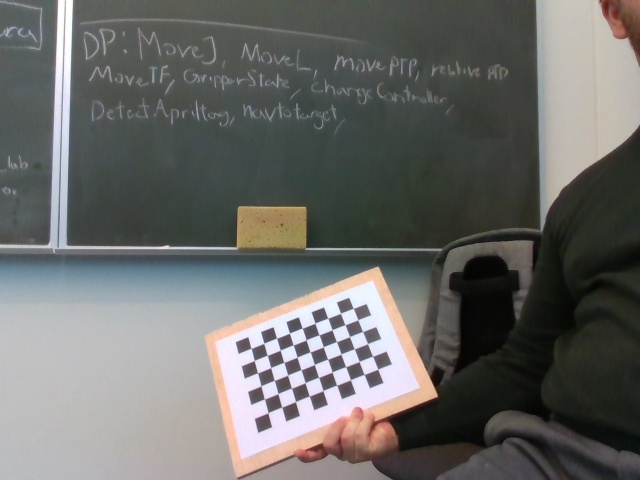 area
DP: MoveJ, MoveL, movePTP, relative PTP
MoveTF, GripperState, changeController,
DetectApriltag, navtotarget,
_lab